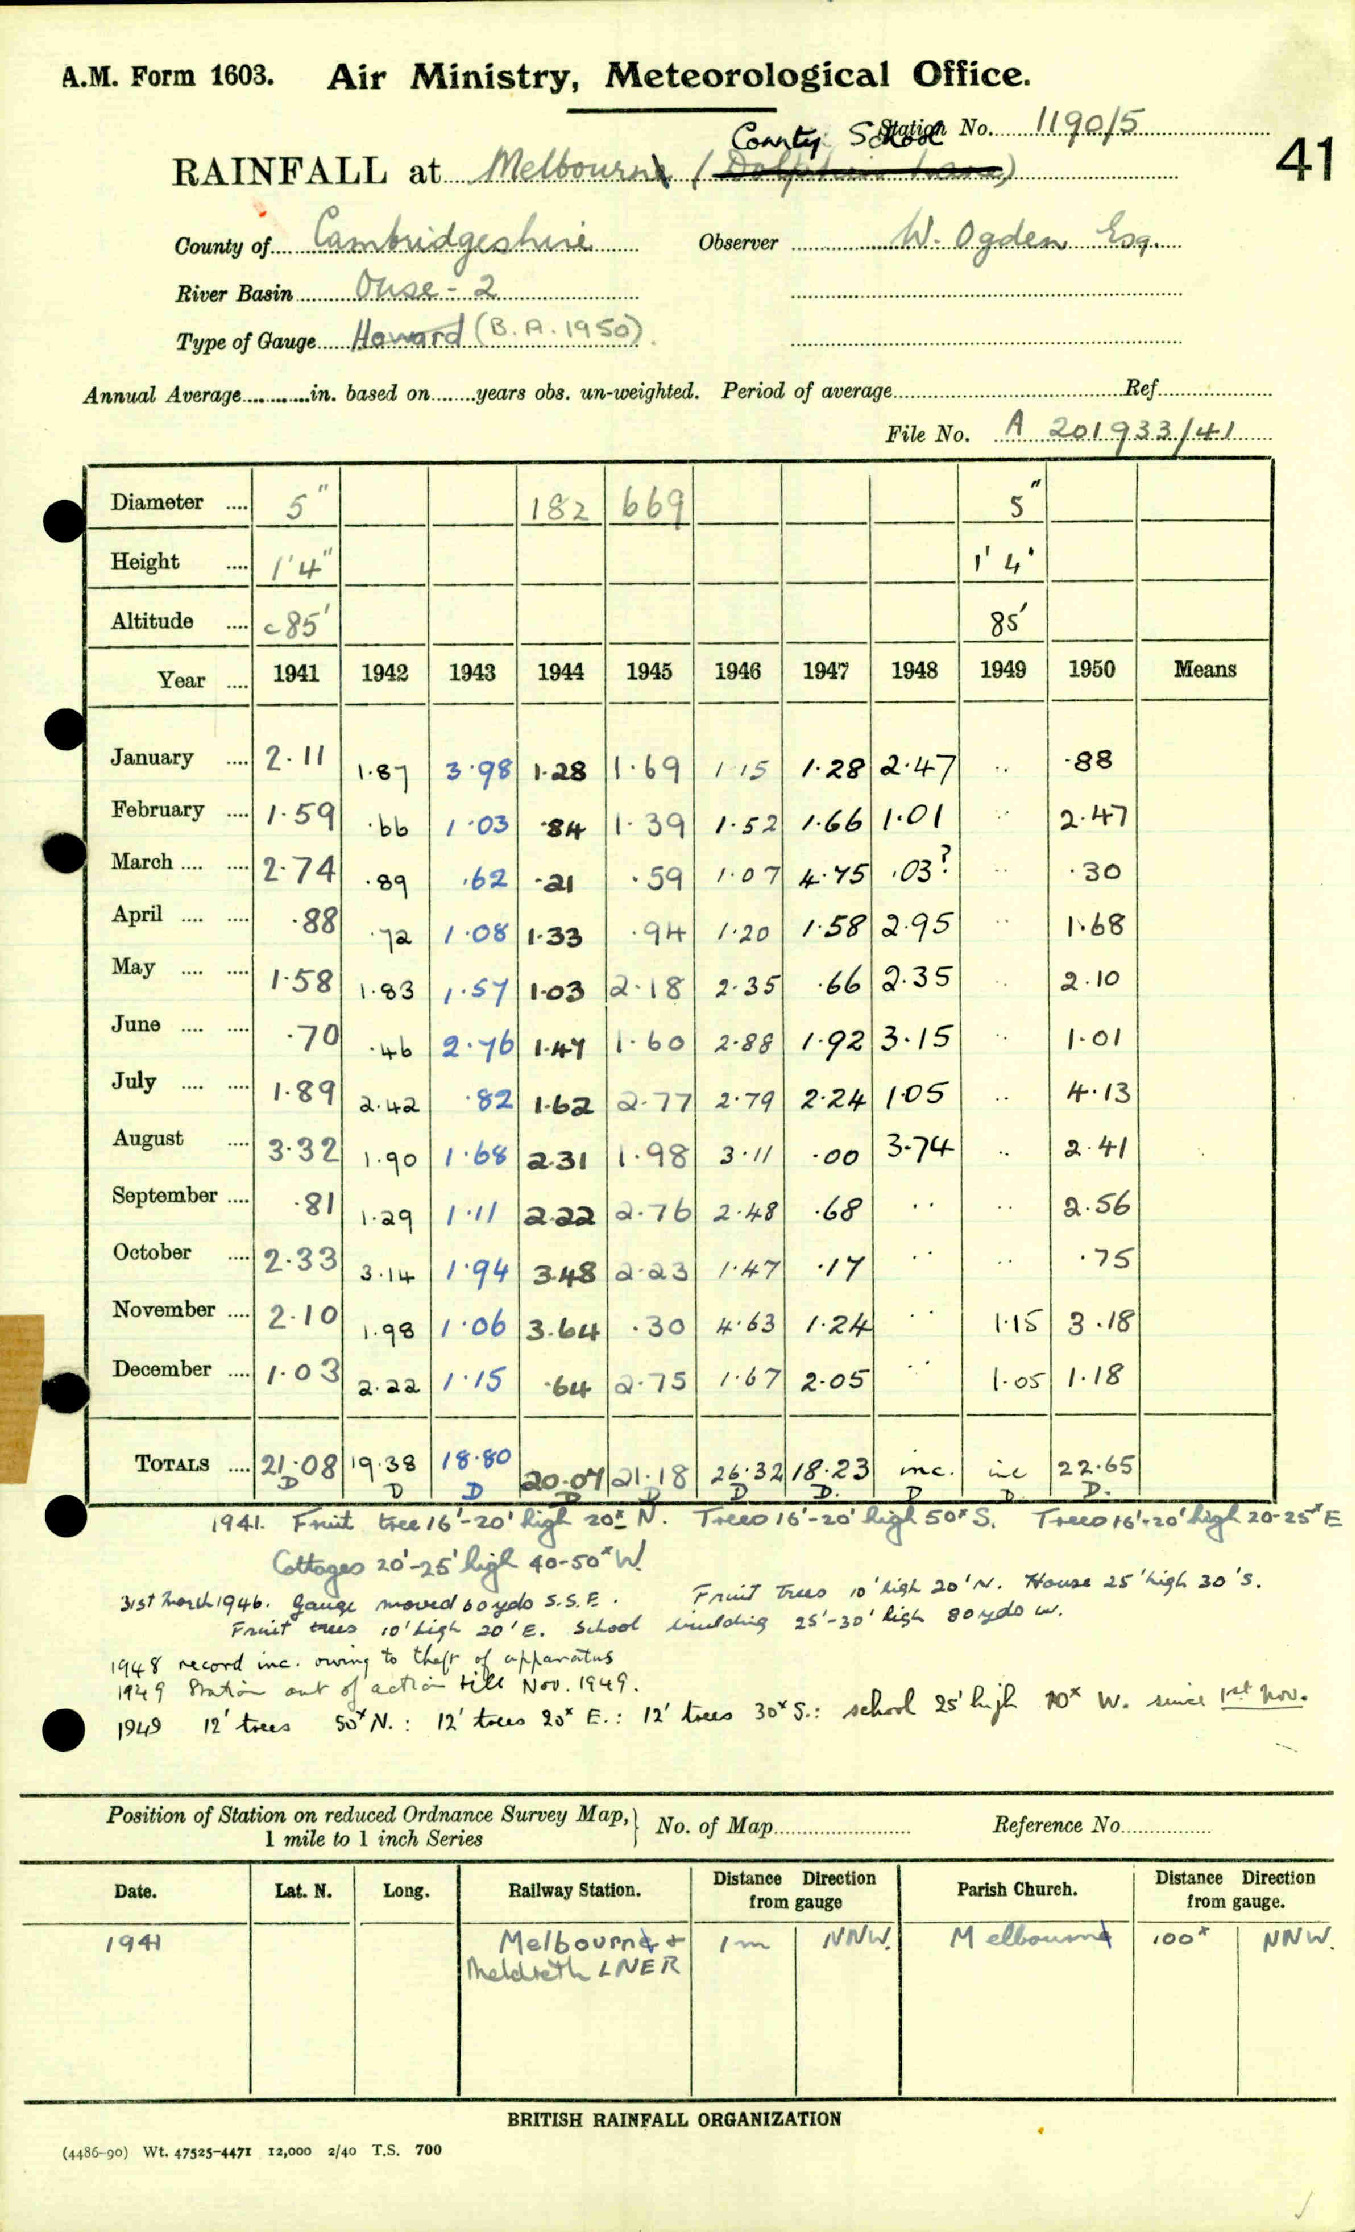 A.M. Form 1603. Air Ministry, Meteorological Office.
Station No. 1190/5
County School
41
RAINFALL at Melbourn (Dolphin Lane)
County of Cambridgeshire Observer W. Ogden Esq.
River Basin Ouse - 2
Type of Gauge Howard (B.A. 1950)
Annual Average in. based on years obs. un-weighted. Period of average Ref
File No. A 201933/41
Diameter .... 5" 182 669 5"
Height .... 1'4" 1' 4"
Altitude .... c85' 85'
Year .... 1941 1942 1943 1944 1945 1946 1947 1948 1949 1950 Means
January .... 2.11 1.87 3.98 1.28 1.69 1.15 1.28 2.47 .. .88
February .... 1.59 .66 1.03 .84 1.39 1.52 1.66 1.01 .. 2.47
March .... .... 2.74 .89 .62 .21 .59 1.07 4.75 .03? .. .30
April .... .... .88 .72 1.08 1.33 .94 1.20 1.58 2.95 .. 1.68
May .... .... 1.58 1.83 1.57 1.03 2.18 2.35 .66 2.35 .. 2.10
June .... .... .70 .46 2.76 1.47 1.60 2.88 1.92 3.15 .. 1.01
July .... .... 1.89 2.42 .82 1.62 2.77 2.79 2.24 1.05 .. 4.13
August .... 3.32 1.90 1.68 2.31 1.98 3.11 .00 3.74 .. 2.41
September .... .81 1.29 1.11 2.22 2.76 2.48 .68 .. .. 2.56
October .... 2.33 3.14 1.94 3.48 2.23 1.47 .17 .. .. .75
November .... 2.10 1.98 1.06 3.64 .30 4.63 1.24 .. 1.15 3.18
December .... 1.03 2.22 1.15 .64 2.75 1.67 2.05 .. 1.05 1.18
TOTALS .... 21.08 19.38 18.80 20.07 21.18 26.32 18.23 inc. inc 22.65
D D D D D D D. D D. D.
1941. Fruit tree 16'-20' high 20x N. Trees 16'-20' high 50x S. Trees 16'-20' high 20-25x E
Cottages 20'-25' high 40-50x W.
31st March 1946. Gauge moved 60 yds S.S.E. Fruit trees 10' high 20' N. House 25' high 30' S.
Fruit trees 10' high 20' E. School building 25'-30' high 80 yds W.
1948 record inc. owing to theft of apparatus
1949 Station out of action till Nov. 1949.
1949 12' trees 50x N. : 12' trees 20x E. : 12' trees 30x S. : school 25' high 70x W. since 1st Nov.
Position of Station on reduced Ordnance Survey Map, } No. of Map Reference No.
1 mile to 1 inch Series
Date. Lat. N. Long. Railway Station. Distance Direction from gauge Parish Church. Distance Direction from gauge.
1941 Melbourn + 1m NNW. Melbourn 100x NNW.
Meldreth LNER
BRITISH RAINFALL ORGANIZATION
(4486-90) Wt. 47525-4471 12,000 2/40 T.S. 700